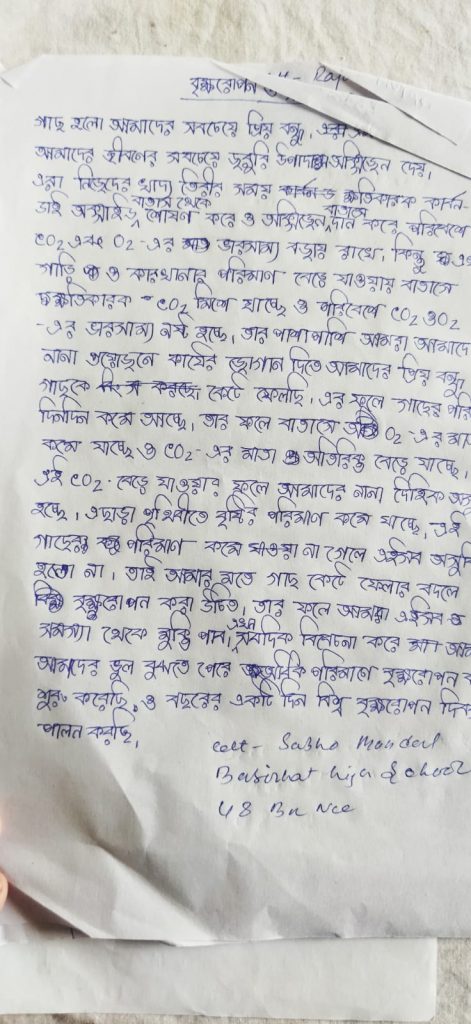 বৃক্ষরোপন
গাছ হলো আমাদের সবচেয়ে প্রিয় বন্ধু, এরা
আমাদের জীবনের সবচেয়ে জরুরি উপাদান অক্সিজেন দেয়,
এরা নিজেদের খাদ্য তৈরীর সময় ক্ষতিকারক কার্বন-
ডাই অক্সাইড বাতাস থেকে শোষণ করে ও অক্সিজেন বাতাসে দান করে পরিবেশে
CO2 এবং O2-এর ভারসাম্য বজায় রাখে, কিন্তু
গাড়ি ও কারখানার পরিমাণ বেড়ে যাওয়ায় বাতাসে
ক্ষতিকারক CO2 মিশে যাচ্ছে ও পরিবেশে CO2 ও O2
-এর ভারসাম্য নষ্ট হচ্ছে, তার পাশাপাশি আমরা আমাদে
নানা প্রয়োজনে কাঠের জোগান দিতে আমাদের প্রিয় বন্ধু
গাছকে কেটে ফেলছি, এর ফলে গাছের পরি
দিনদিন কমে আসছে, তার ফলে বাতাসে O2-এর মা
কমে যাচ্ছে ও CO2-এর মাত্রা অতিরিক্ত বেড়ে যাচ্ছে,
এই CO2-বেড়ে যাওয়ার ফলে আমাদের নানা দৈহিক
হচ্ছে, এছাড়া পৃথিবীতে বৃষ্টির পরিমাণ কমে যাচ্ছে, এই
গাছের পরিমাণ কমে যাওয়া না গেলে এইসব অসুবি
হতো না, তাই আমার মতে গাছ কেটে ফেলার বদলে
বৃক্ষরোপন করা উচিত, তার ফলে আমরা এইসব
সমস্যা থেকে মুক্তি পাব, এখন সবদিক বিবেচনা করে
আমাদের ভুল বুঝতে পেরে অধিক পরিমাণে বৃক্ষরোপন
শুরু করেছি, ও বছরের একটি দিন বিশ্ব বৃক্ষরোপন দিব
পালন করছি,
cdt- Sabho Mondal
Basirhat high School
48 Bn Ncc